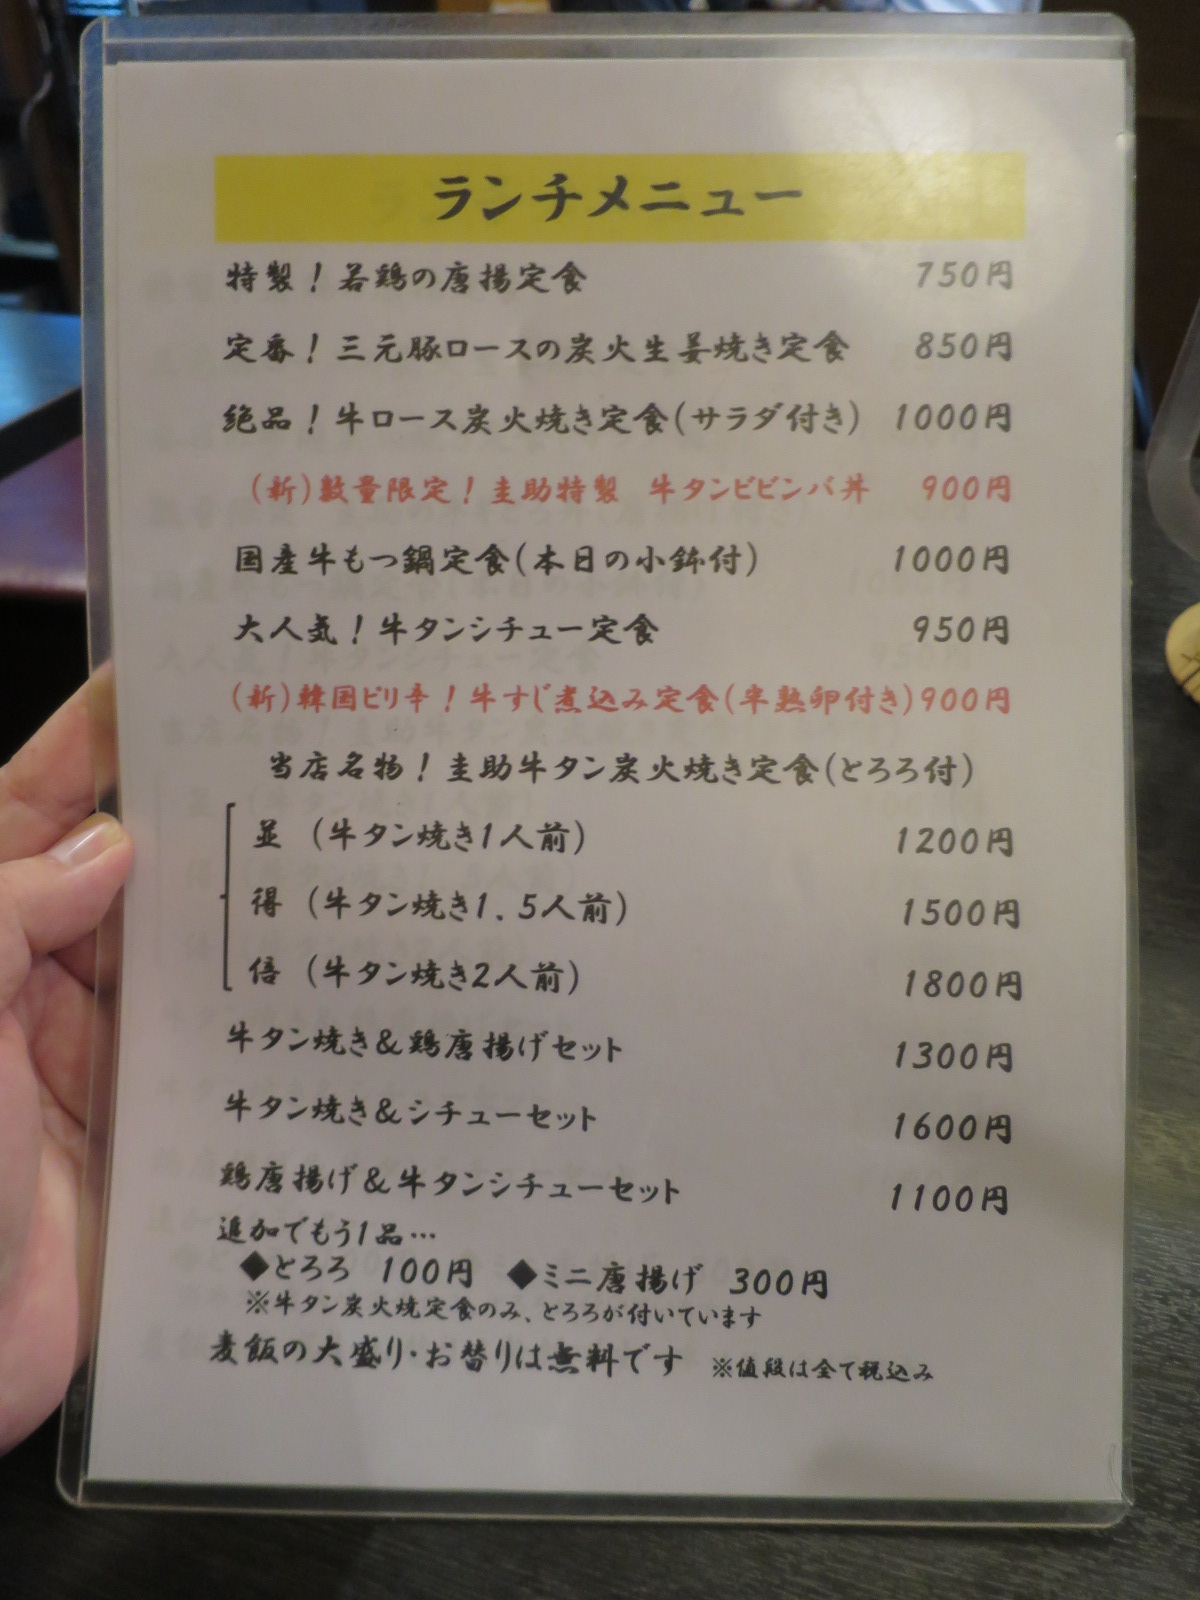 ランチメニュー
特製！若鶏の唐揚定食 750円
定番！三元豚ロースの炭火生姜焼き定食 850円
絶品！牛ロース炭火焼き定食(サラダ付き) 1000円
(新)数量限定！圭助特製 牛タンビビンバ丼 900円
国産牛もつ鍋定食(本日の小鉢付) 1000円
大人気！牛タンシチュー定食 950円
(新)韓国ピリ辛！牛すじ煮込み定食(半熟卵付き)900円
当店名物！圭助牛タン炭火焼き定食(とろろ付)
並 (牛タン焼き1人前) 1200円
得 (牛タン焼き1.5人前) 1500円
倍 (牛タン焼き2人前) 1800円
牛タン焼き&鶏唐揚げセット 1300円
牛タン焼き&シチューセット 1600円
鶏唐揚げ&牛タンシチューセット 1100円
追加でもう1品…
◆とろろ 100円 ◆ミニ唐揚げ 300円
※牛タン炭火焼定食のみ、とろろが付いています
麦飯の大盛り・お替りは無料です ※値段は全て税込み